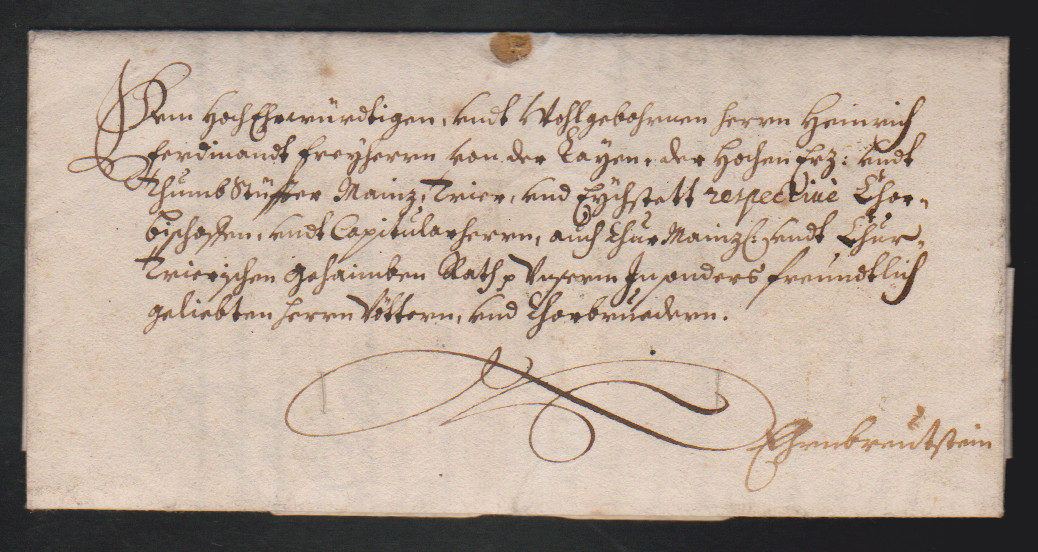 Dem HochEhrwürdtigen, undt Wohlgebohrnen herrn Heinrich
Ferdinandt Freyherrn von der Layen, der Hochen Erz: undt
Thumb Stüffter Mainz, Trier, und Eychstett respectivè Chor-
bischoffen, undt Capitularherrn, auch Chur Mainz: undt Chur-
Trierischen gehaimben Rath p Unserm Insonders freundtlich
geliebten herrn Vöttern, und Chorbruedern.
Ehrnbreutstein